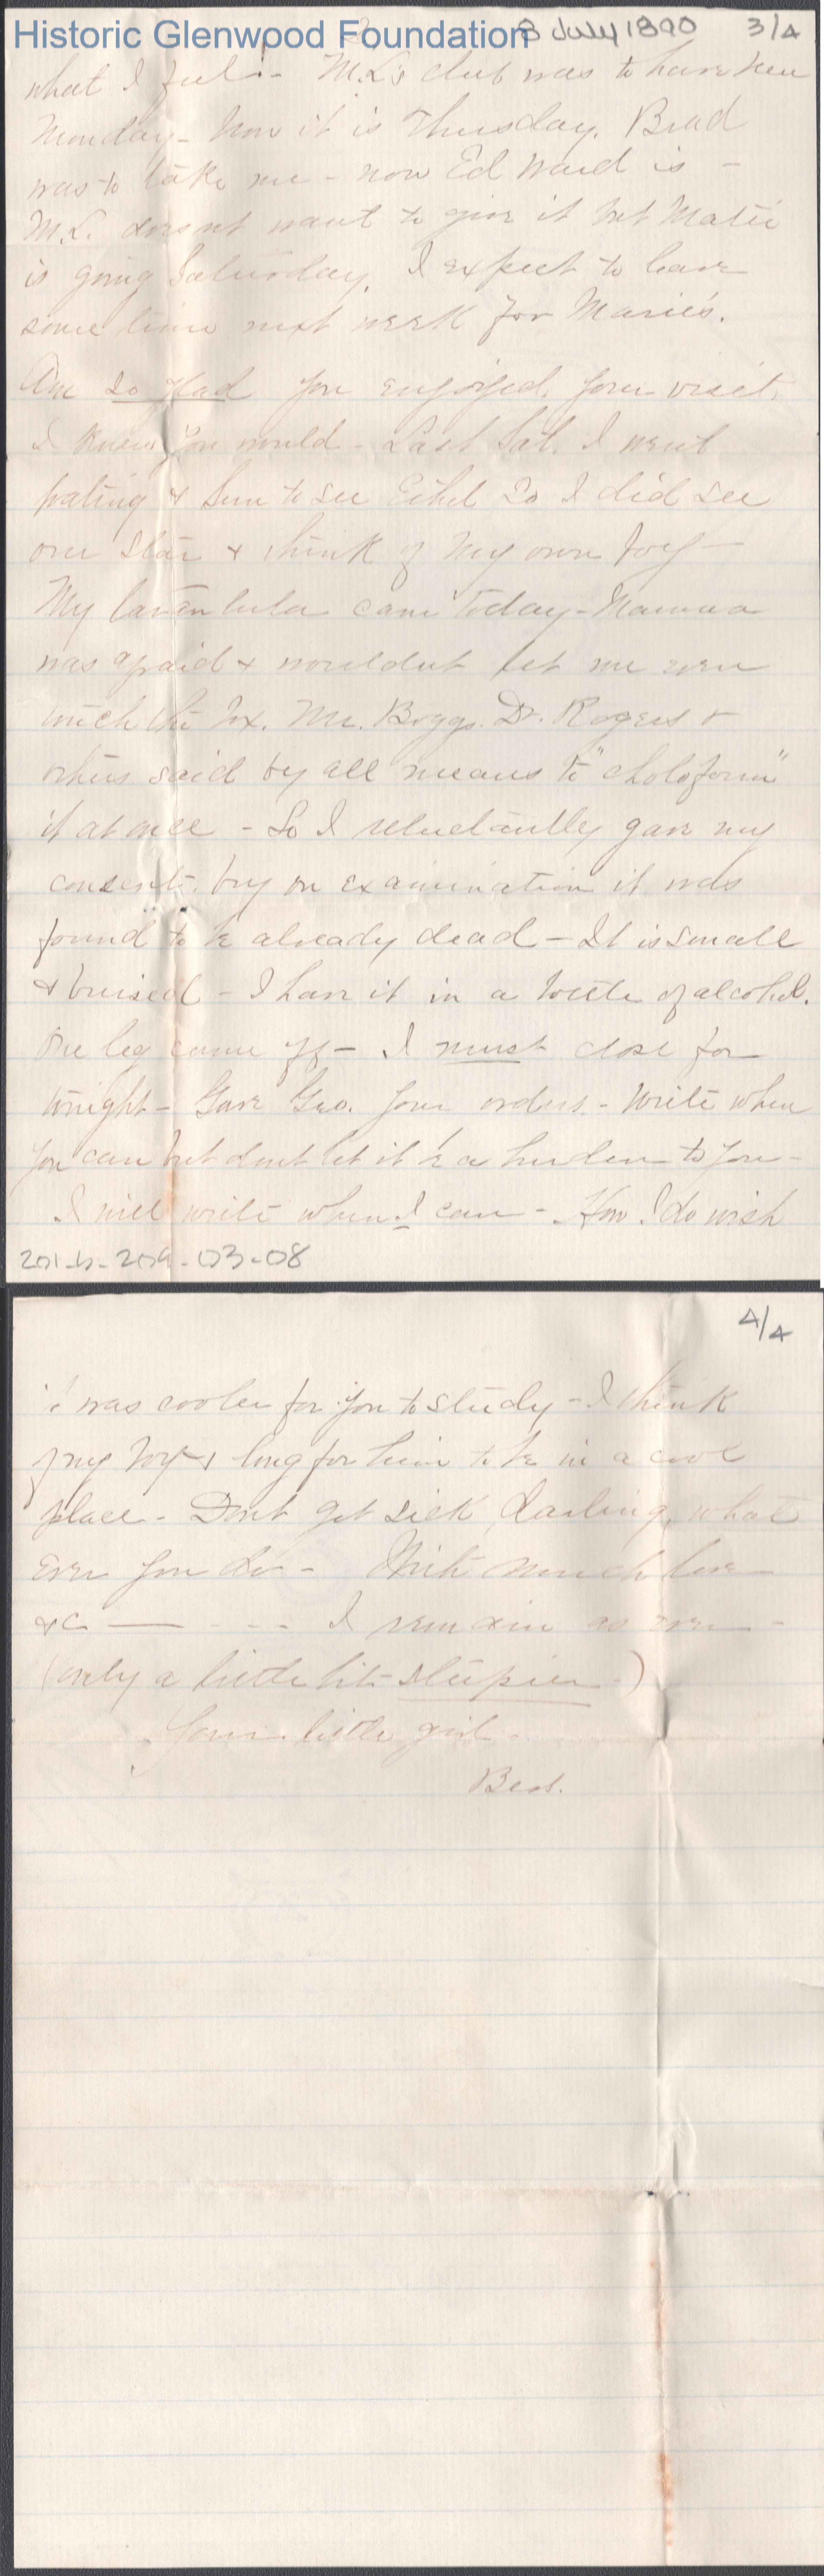 Historic Glenwood Foundation
8 July 1890 3/4
what I feel! - M.L.'s club was to have been
Monday - Now it is Thursday. Brad
was to take me - now Ed Ward is -
M.L. doesnt want to give it but Matie
is going Saturday. I expect to leave
some time next week for Marie's.
Am so glad you enjoyed your visit.
I knew you would - Last Sat. I went
& Sun to see Ethel so I did see
our star & think of my own boy -
My tarantula came today - Mamma
was afraid & wouldnt let me even
touch the box. Mr. Boggs. Dr. Rogers &
others said by all means to "choloform"
it at once - So I reluctantly gave my
consent. but on examination it was
found to be already dead - It is small
& bruised - I have it in a bottle of alcohol.
One leg came off - I must close for
tonight - Gave Geo. your orders - Write when
you can but dont let it be a burden to you -
I will write when I can - How I do wish
201-b-209-03-08
4/4
it was cooler for you to study - I think
of my boy & long for him to be in a cool
place - Dont get sick, darling, what
ever you do - With much love
&c — - - - I remain as ever -
(only a little bit sleepier -)
Your little girl -
Bess.